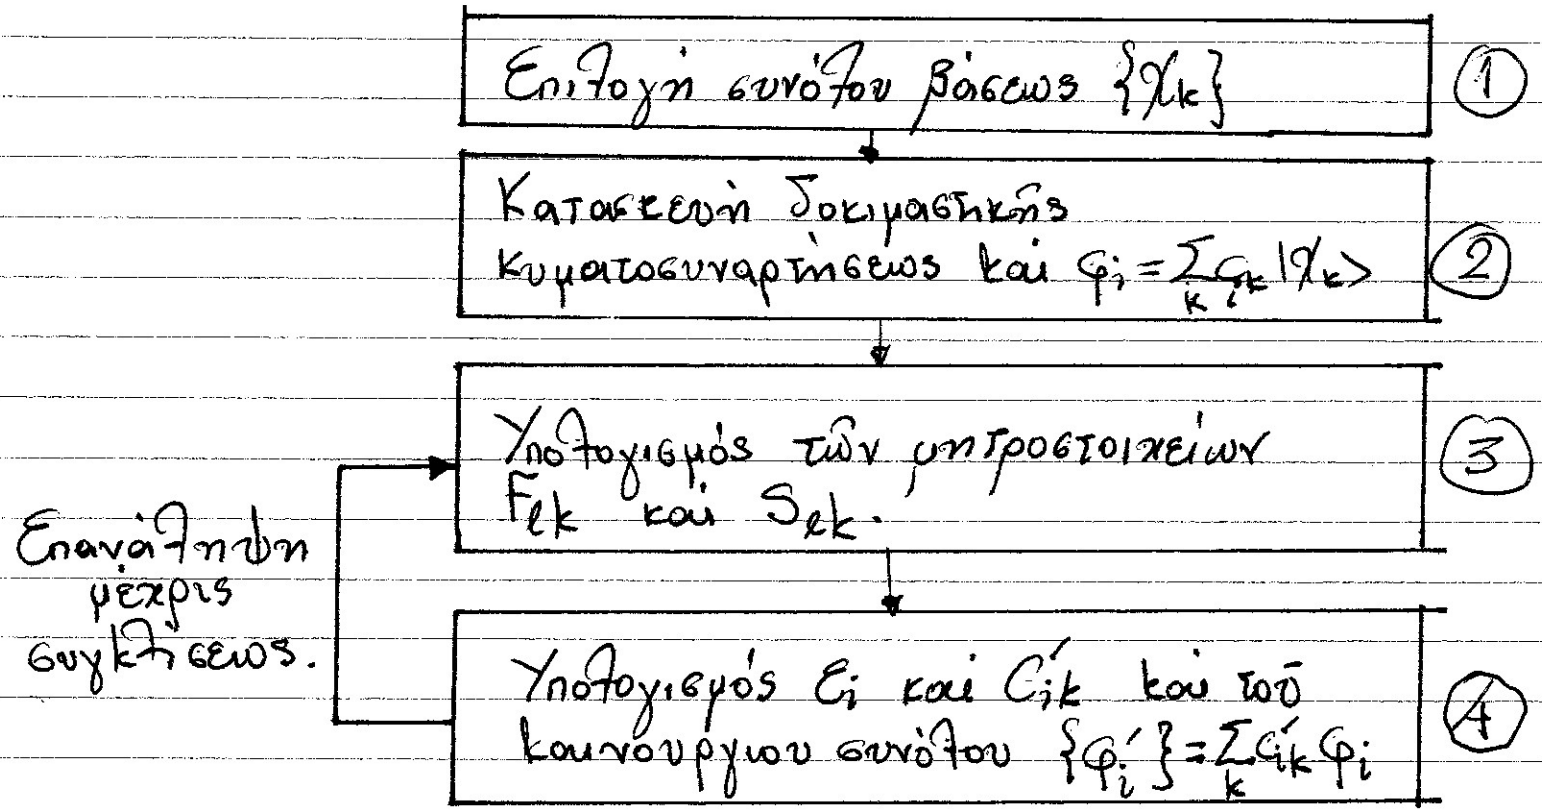 Επιλογή συνόλου βάσεως {χₖ} ①
Κατασκευή δοκιμαστικῆς
κυματοσυναρτήσεως καὶ φᵢ = Σₖ cᵢₖ |χₖ> ②
Υπολογισμός τῶν μητροστοιχείων ③
Fℓk καὶ Sℓk.
Επανάληψη
μέχρις
συγκλίσεως.
Υπολογισμός εᵢ καὶ C′ᵢₖ καὶ τοῦ ④
καινούργιου συνόλου {φᵢ′} = Σₖ c′ᵢₖ φᵢ